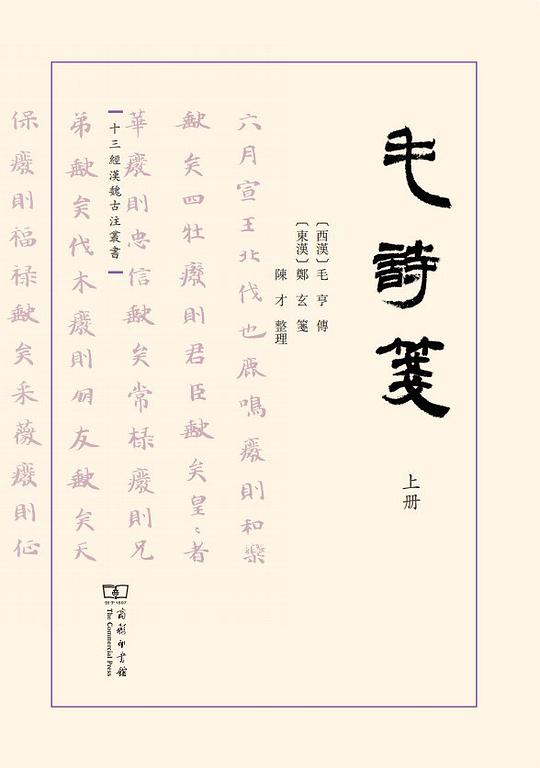 毛詩箋
上册
〔西漢〕毛 亨 傳
〔東漢〕鄭 玄 箋
陳 才 整理
六月宣王北伐也鹿鳴廢則和樂
缺矣四牡廢則君臣缺矣皇〻者
華廢則忠信缺矣常棣廢則兄
弟缺矣伐木廢則朋友缺矣天
保廢則福祿缺矣采薇廢則征
十三經漢魏古注叢書
创于1897
商務印書館
The Commercial Press